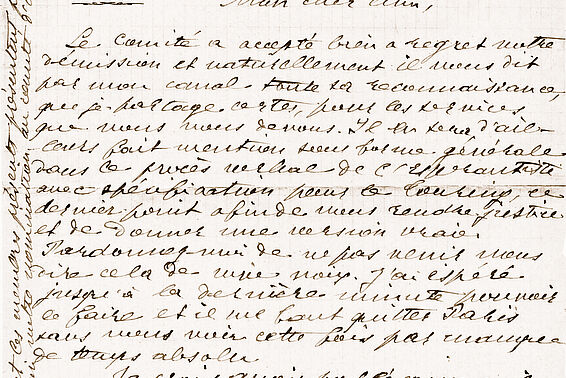 Mon cher ami,
Le comité a accepté bien a regret votre
démission et naturellement il vous dit
par mon canal toute sa reconnaissance,
que je partage certes, pour les services
que nous vous devons. Il en sera d'ail-
leurs fait mention sous forme générale
dans le procès verbal de l'Espérantiste
avec spécification pour le Touring, ce
dernier point afin de vous rendre justice
et de donner une version vraie.
Pardonnez-moi de ne pas venir vous
dire cela de vive voix. J'ai espéré
jusqu'à la dernière minute pouvoir
le faire et il me faut quitter Paris
sans vous voir cette fois par manque
de temps absolu.